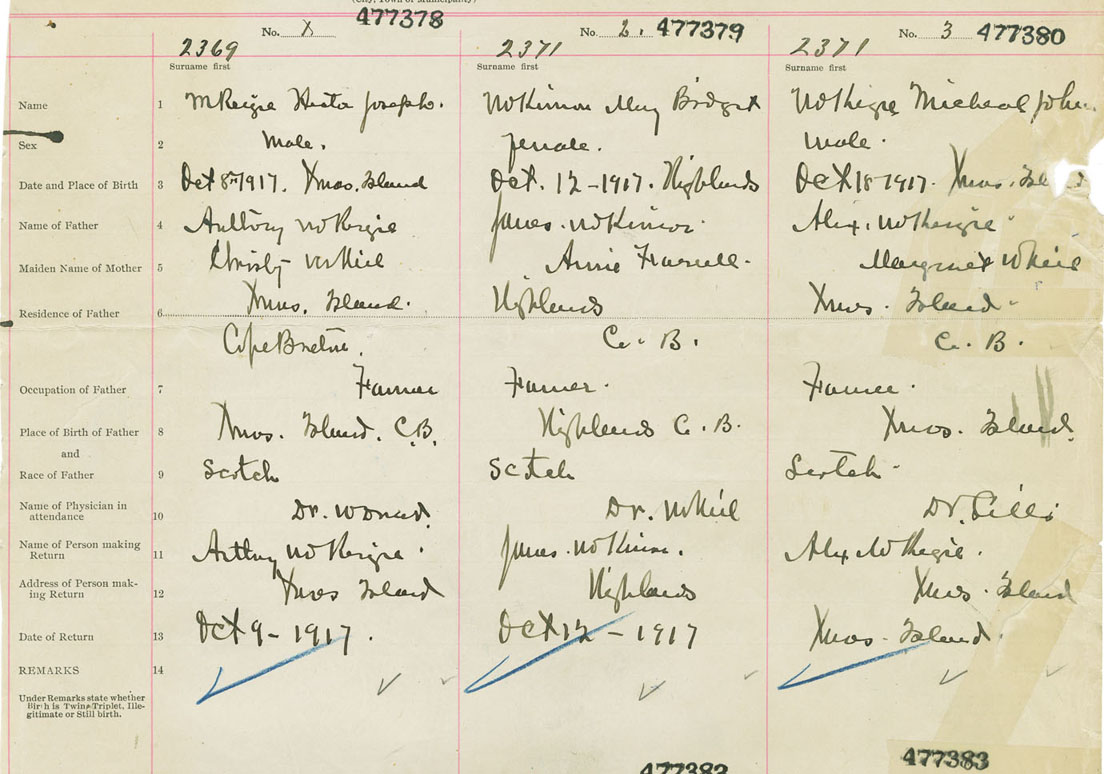 (City, Town or Municipality)
No. X 477378 No. 2. 477379 No. 3 477380
2369 2371 2371
Surname first Surname first Surname first
Name 1 McKenzie Hector Joseph. McKinnon May Bridget McKenzie Micheal John
Sex 2 Male. female. male.
Date and Place of Birth 3 Oct 8th 1917. Xmas. Island Oct. 12-1917. Highlands Oct 18 1917. Xmas.
Name of Father 4 Anthony McKenzie James. McKinnon. Alex. McKenzie
Maiden Name of Mother 5 Christy McNeil Annie Margaret McNeil
Residence of Father 6 Xmas. Island. Highlands Xmas. Island.
Cape Breton. C. B. C. B.
Occupation of Father 7 Farmer Farmer. Farmer.
Place of Birth of Father 8 Xmas. Island. C.B. Highlands C. B. Xmas. Island.
and
Race of Father 9 Scotch Scotch Scotch
Name of Physician in
attendance 10 Dr. Dr. McNeil Dr. Gillis
Name of Person making
Return 11 Anthony McKenzie. James. McKinnon. Alex McKenzie.
Address of Person mak-
ing Return 12 Xmas Island Highlands Xmas. Island
Date of Return 13 Oct 9-1917. Oct 12-1917 Xmas. Island.
REMARKS 14
Under Remarks state whether
Birth is Twin, Triplet, Ille-
gitimate or Still birth.
477382 477383